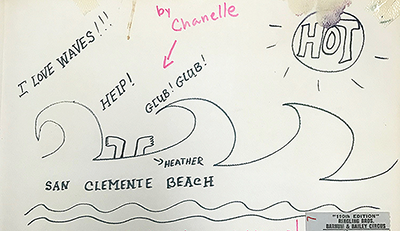 by
Chanelle
I LOVE WAVES!!!
HELP!
GLUB! GLUB!
HOT
HEATHER
SAN CLEMENTE BEACH
"110th EDITION"
RINGLING BROS.
BARNUM & BAILEY CIRCUS